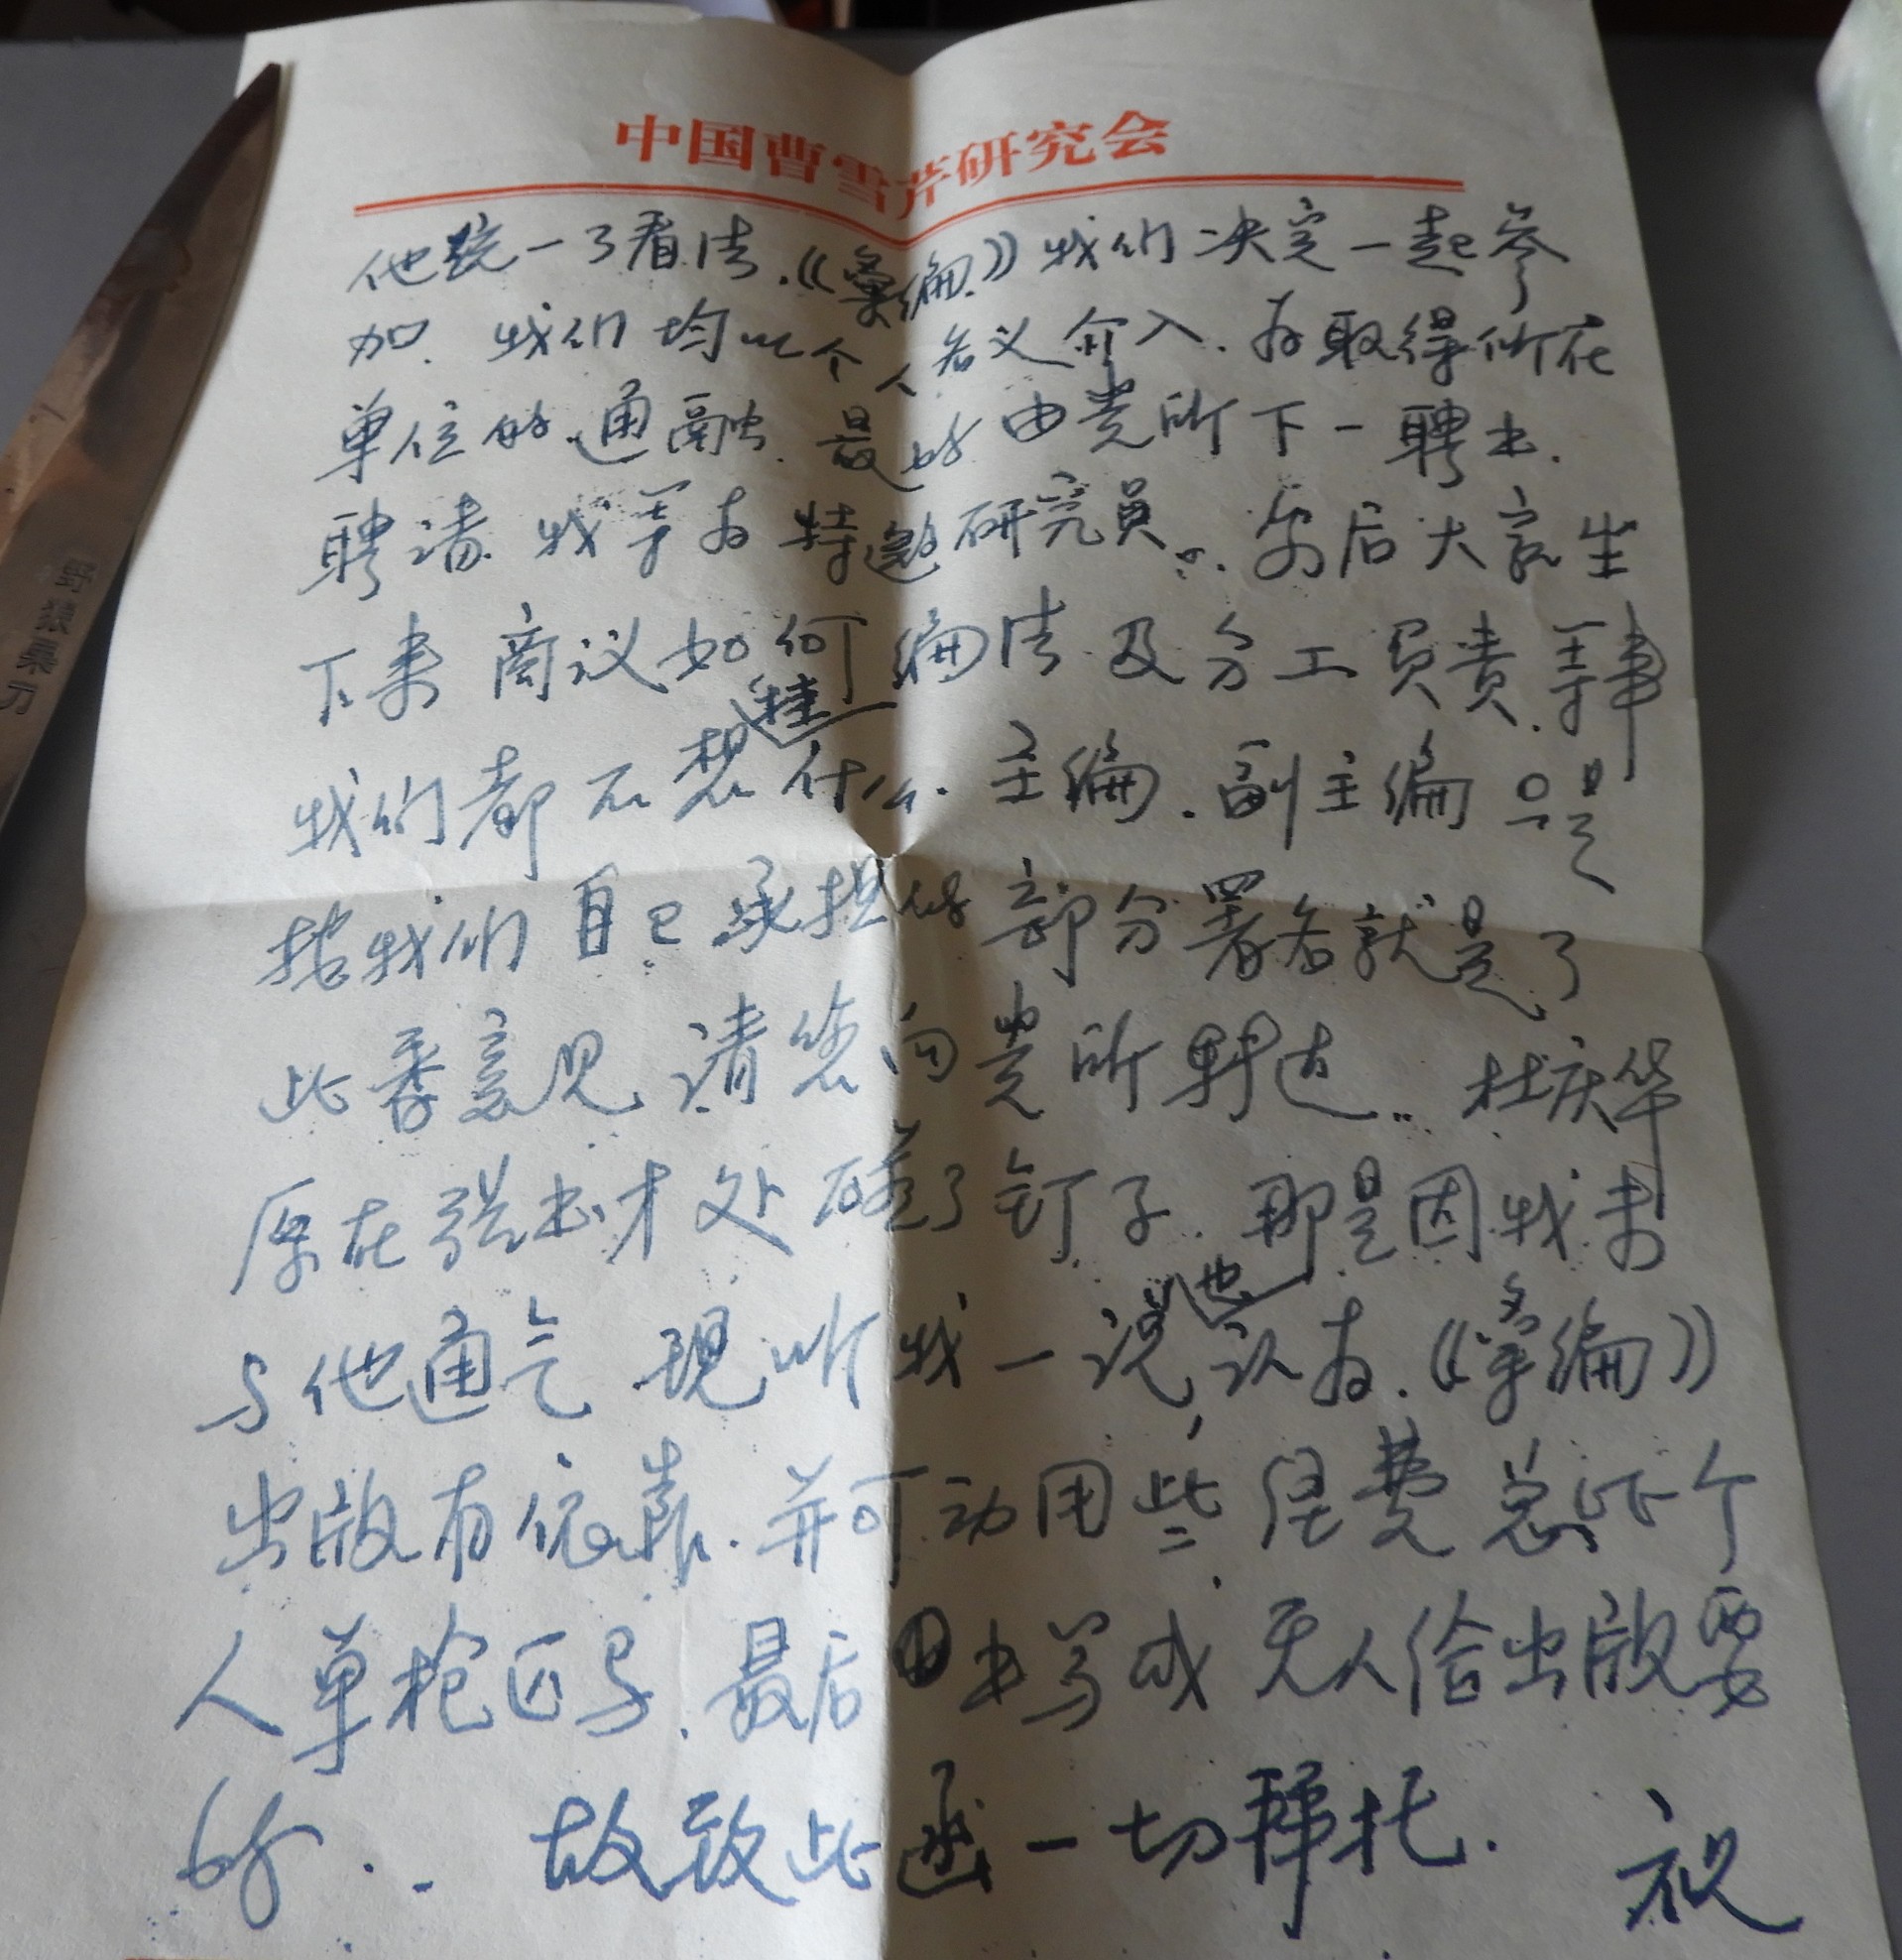 中国曹雪芹研究会
他统一了看法.《汇编》我们决定一起参
加.我们均以个人名义介入.为取得所在
单位的通融.最好由贵所下一聘书.
聘请我等为特邀研究员.然后大家坐
下来商议如何编法及分工负责.事
我们都不想挂什么主编.副主编只是
按我们自己承担的部分署名就是了
此番意见请您向贵所转达..杜庆华
原在张书才处碰了钉子.那是因我未
与他通气现听我一说他认为.《汇编》
出版有依靠.并可动用些经费总比个
人单枪匹马.最后书写成无人给出版要
好..故致此函一切拜托.祝
野狼果刀